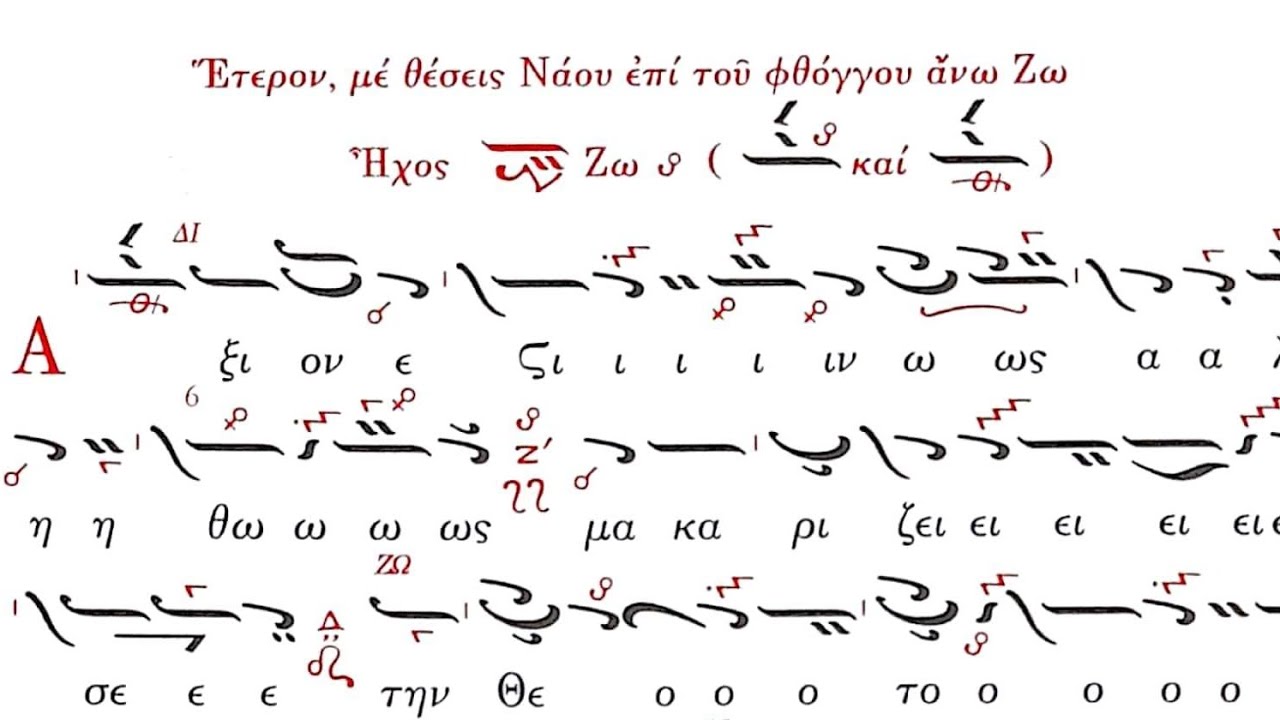 Ἕτερον, μέ θέσεις Νάου ἐπί τοῦ φθόγγου ἄνω Ζω
Ἦχος Ζω ( καί )
ΔΙ
Α ξι ον ε ςι ι ι ι ιν ω ως α α
6
η η θω ω ω ως μα κα ρι ζει ει ει ει ει
Ζ′
ΖΩ
σε ε ε την Θε ο ο ο το ο ο ο ο
Δ